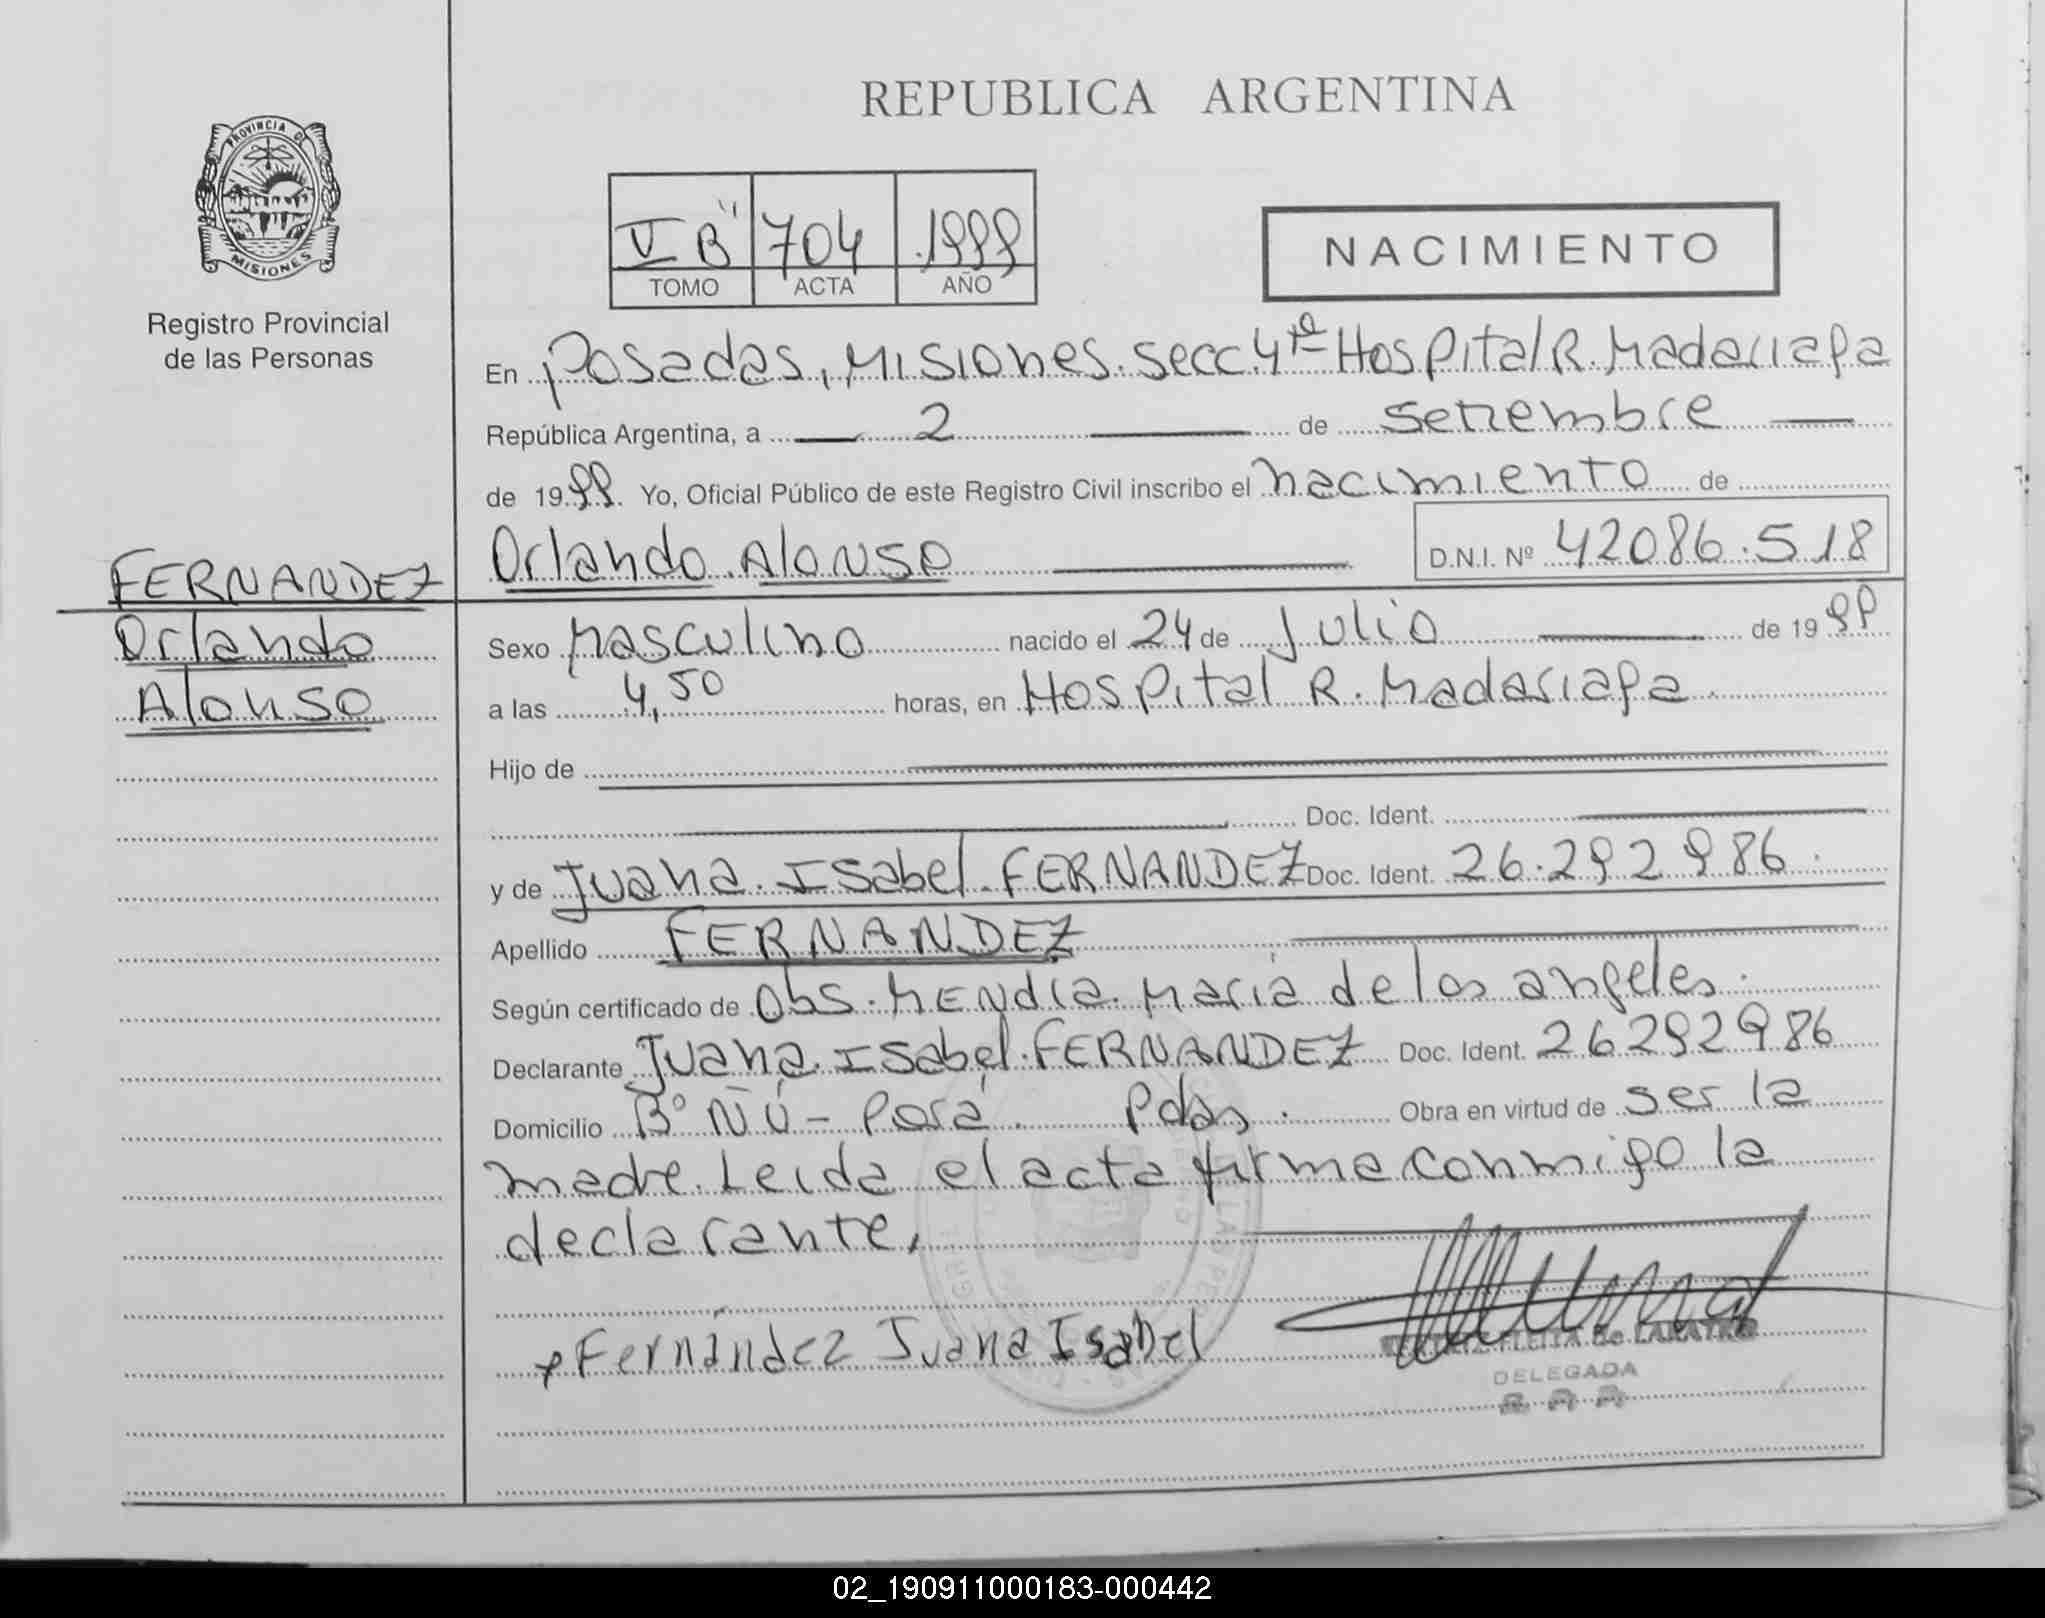 REPUBLICA ARGENTINA
PROVINCIA DE
MISIONES
Registro Provincial
de las Personas
V B" 704 1999
TOMO ACTA AÑO
NACIMIENTO
En Posadas, Misiones. Secc. 4ta Hospital R. Madariaga
República Argentina, a 2 de Setiembre
de 1999. Yo, Oficial Público de este Registro Civil inscribo el nacimiento de
Orlando Alonso D.N.I. Nº 42086.518
FERNANDEZ
Orlando
Alonso
Sexo Masculino nacido el 24 de Julio de 1999
a las 4,50 horas, en Hospital R. Madariaga
Hijo de
Doc. Ident.
y de Juana Isabel FERNANDEZ Doc. Ident. 26.292986
Apellido FERNANDEZ
Según certificado de Obs. MENdia Maria de los angeles.
Declarante Juana Isabel FERNANDEZ Doc. Ident. 26292986
Domicilio Bº Ñú - Porá Pdas. Obra en virtud de ser la
madre. Leida el acta firma conmigo la
declarante,
Fernández Juana Isabel
DELEGADA
02_190911000183-000442